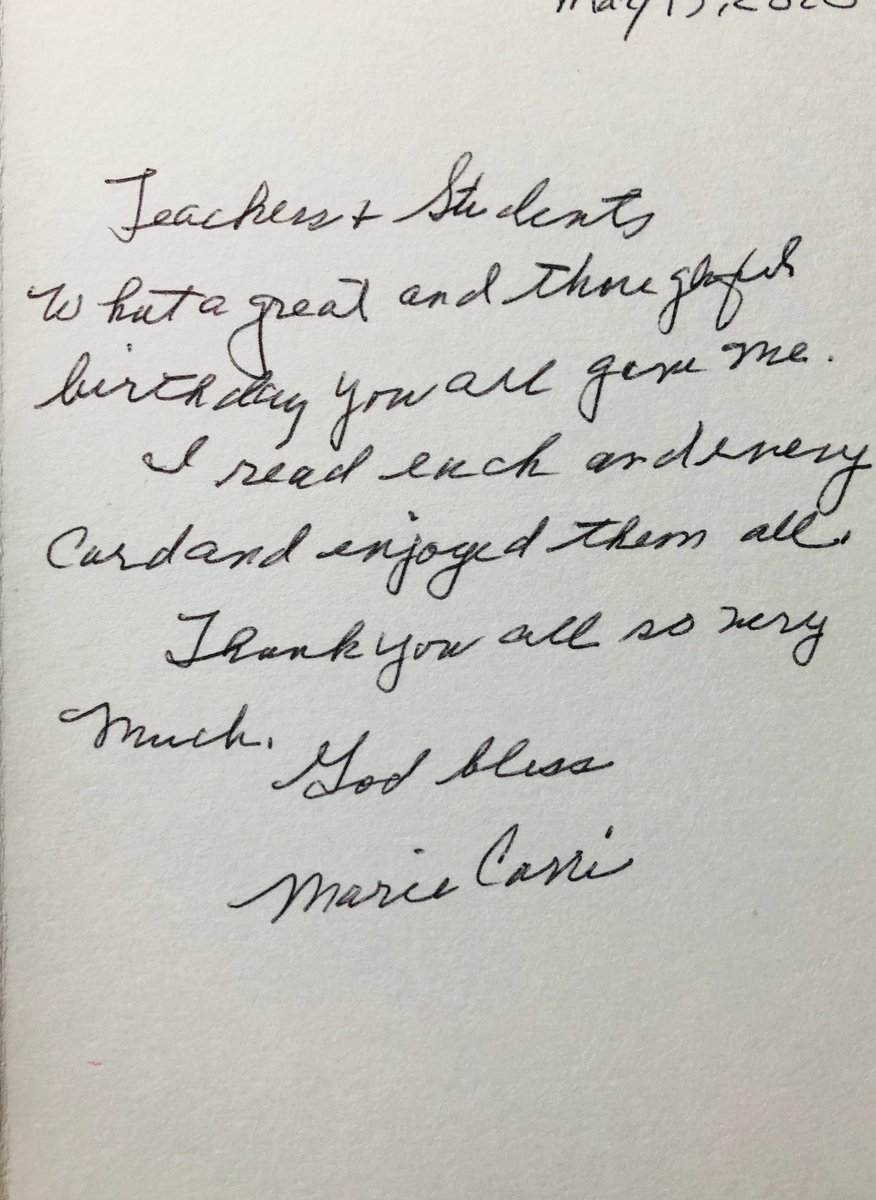 May 15, 2020
Teachers + Students
What a great and thoughtful
birthday you all gave me.
I read each and every
Card and enjoyed them all.
Thank you all so very
Much.
God bless
Marie